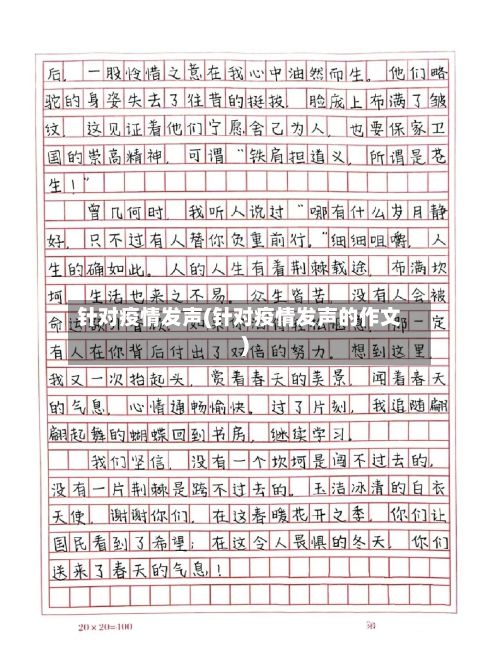 后，一股怜惜之意在我心中油然而生。他们略
驼的身姿失去了往昔的挺拔，脸庞上布满了皱
纹。这见证着他们宁愿舍己为人，也要保家卫
国的崇高精神，可谓“铁肩担道义，所谓是苍
生！”
曾几何时，我听人说过“哪有什么岁月静
好，只不过有人替你负重前行。”细细咀嚼，人
生的确如此。人的人生有着荆棘载途，布满坎
坷，生活也来之不易。众生皆苦，没有人会被
针对疫情发声(针对疫情发声的作文
)
有人在你背后付出了双倍的努力。想到这里，
我又一次抬起头，赏着春天的美景，闻着春天
的气息，心情通畅愉快。过了片刻，我追随翩
翩起舞的蝴蝶回到书房，继续学习。
我们坚信，没有一个坎坷是闯不过去的，
没有一片荆棘是跨不过去的。玉洁冰清的白衣
天使，谢谢你们，在这春暖花开之季，你们让
国民看到了希望；在这令人畏惧的冬天，你们
送来了春天的气息！
20×20=400
第